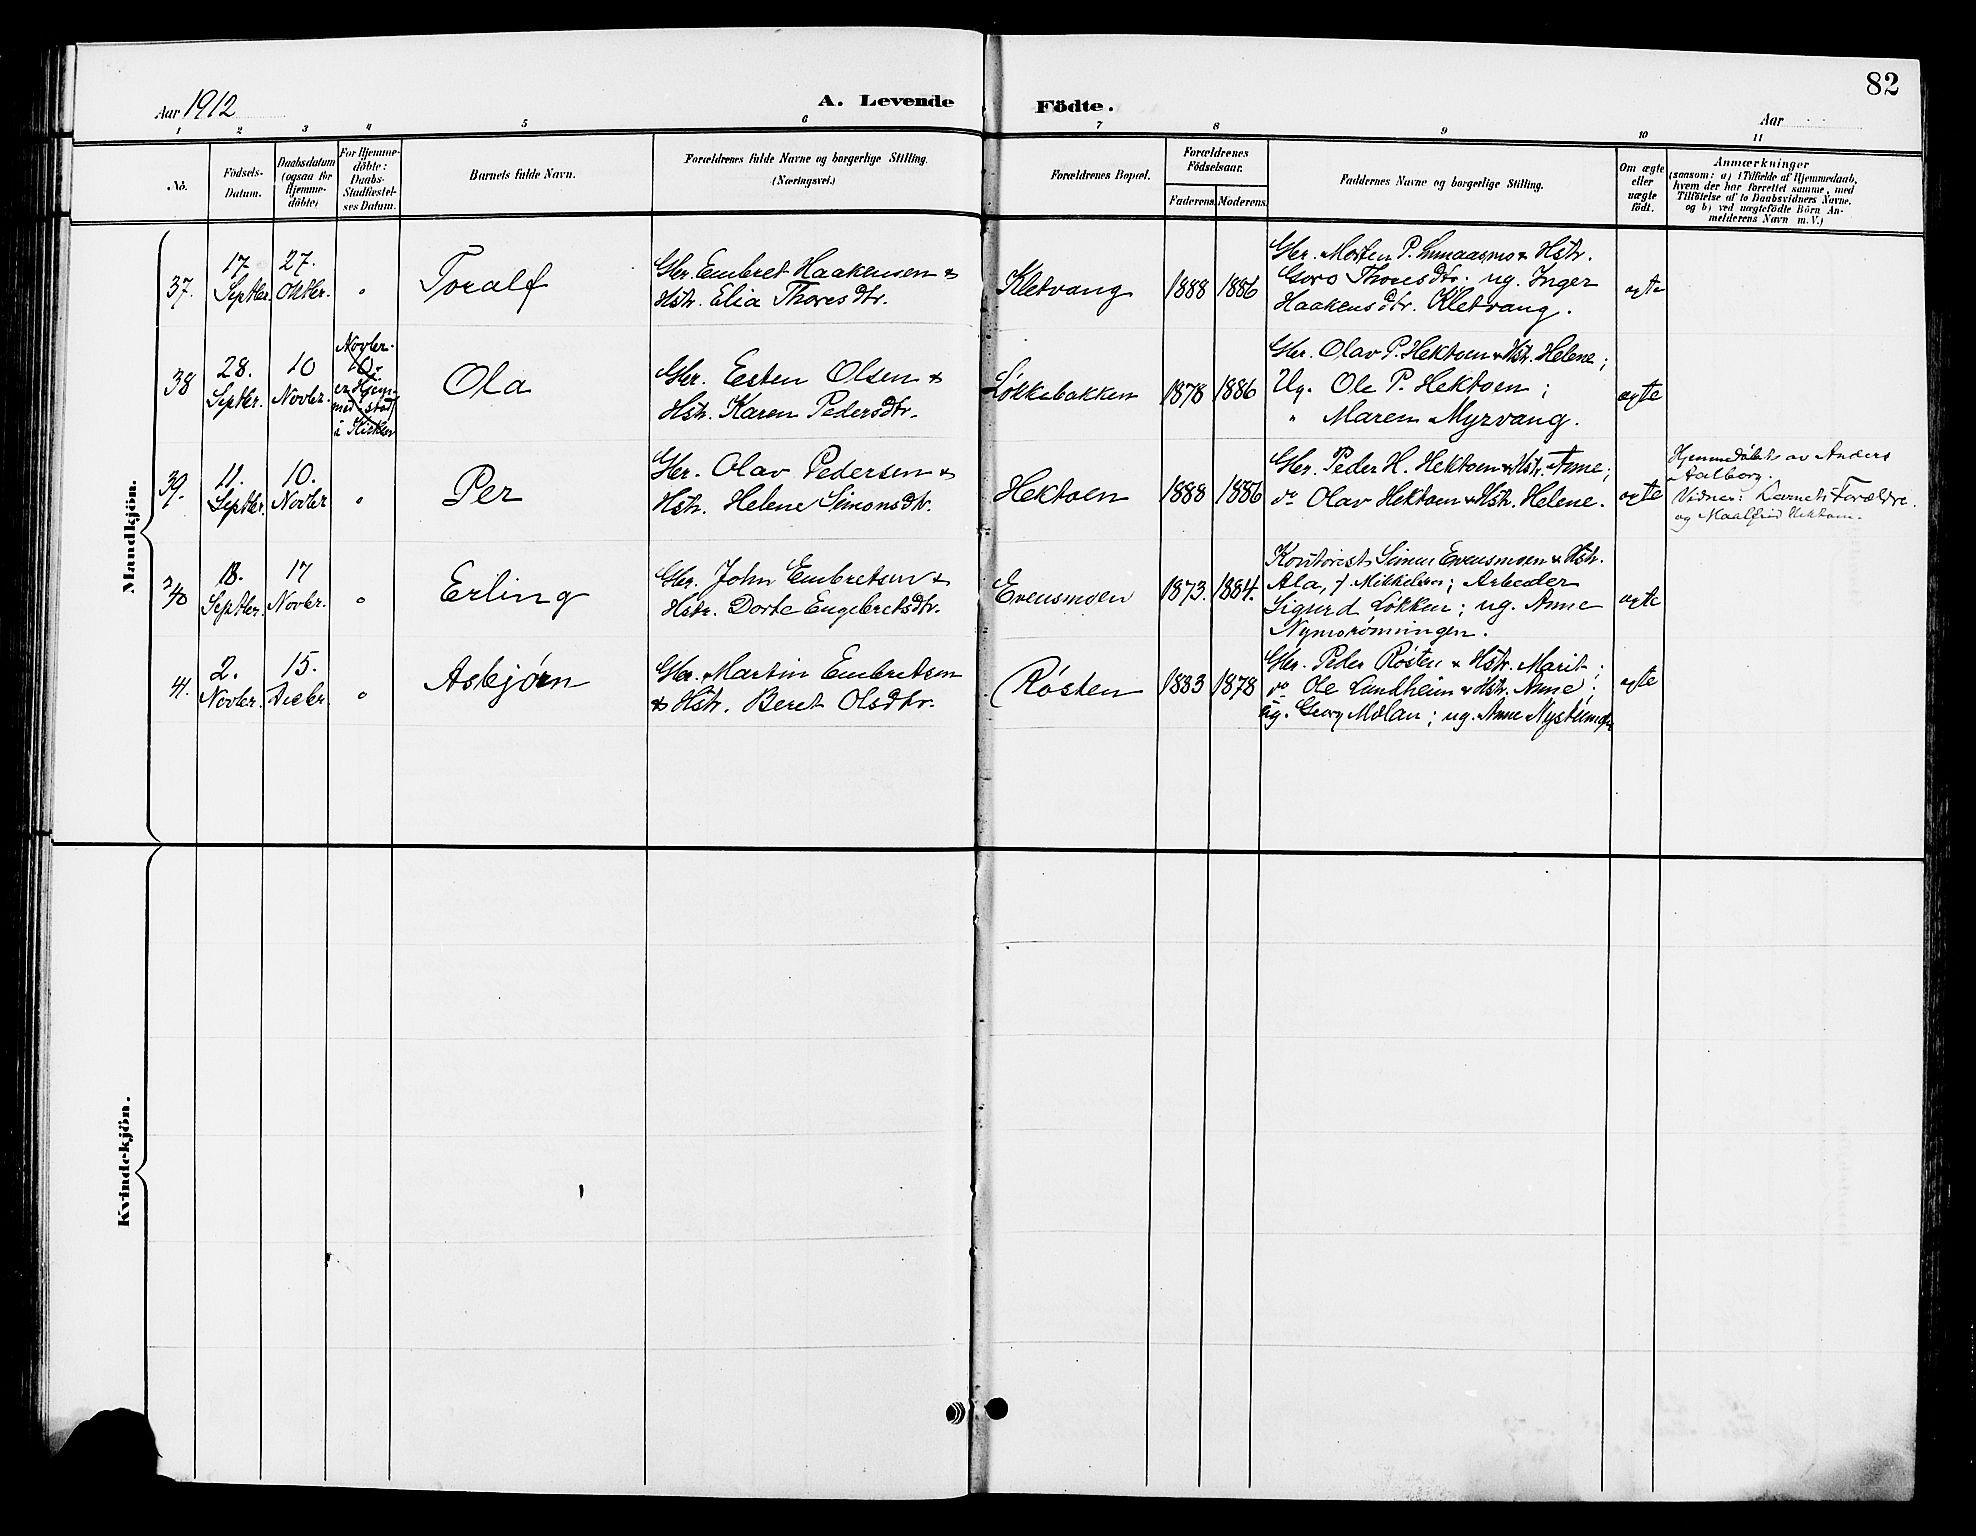 82
Aar 1912
A. Levende Födte.
Aar
1 2 3 4 5 6 7 8 9 10 11
No.
Födsels-
Datum.
Daabsdatum
(ogsaa for
Hjemme-
döbte)
For Hjemme-
döbte:
Daabs-
Stadfæstel-
ses Datum.
Barnets fulde Navn.
Forældrenes fulde Navne og borgerlige Stilling.
(Næringsvei.)
Forældrenes Bopæl.
Forældrenes
Födselsaar.
Faderens. Moderens.
Faddernes Navne og borgerlige Stilling.
Om ægte
eller
uægte
födt.
Anmærkninger
(saasom: a) i Tilfælde af Hjemmedaab,
hvem der har forrettet samme, med
Tilföielse af to Daabsvidners Navne,
og b) ved uægtefödte Börn An-
melderens Navn m. V.)
Mandkjön.
37. 17. Septbr. 27. Oktbr. " Toralf
Gbr. Embret Haakensen &
Hstr. Elia Thoresdtr.
Kletvang 1888 1886
Gbr. Morten P. & Hstr.
Goro Thoresdtr. ug. Inger
Haakensdtr. Kletvang.
ægte
38 28. Septbr. 10 Novbr.
Novbr.
10.
i Kirken
Ola
Gbr. Esten Olsen &
Hstr. Karen Pedersdtr.
Løkkebakken 1878 1886
Gbr. Olav P. Hektoen & Hstr. Helene;
Ug. Ole P. Hektoen;
" Maren Myrvang.
ægte
39. 11. Septbr. 10. Novbr. " Per
Gbr. Olav Pedersen &
Hstr. Helene Simonsdtr.
Hektoen 1888 1886
Gbr. Peder H. Hektoen & Hstr. Anne;
do Olav Hektoen & Hstr. Helene.
ægte
Hjemmedöbt av Anders
Aalborg.
Vidner: Barnets Forældre
og Maalfrid Hektoen.
40 18. Septbr. 17 Novbr. " Erling
Gbr. John Embretsen &
Hstr. Dorte Engebretsdtr.
Evensmoen 1873. 1884.
Kontorist Simen Evensmoen & Hstr.
Ala, f. Mikkelsen; Arbeider
Sigurd Løkken; ug. Anne
Nymorønningen.
ægte
41. 2. Novbr. 15. Decbr. " Asbjørn
Gbr. Martin Embretsen
& Hstr. Beret Olsdtr.
Røsten 1883 1878
Gbr. Peder Røsten & Hstr. Marit;
do Ole Lundheim & Hstr. Anne;
ug. Georg Mælan; ug. Anne
ægte
Kvindekjön.